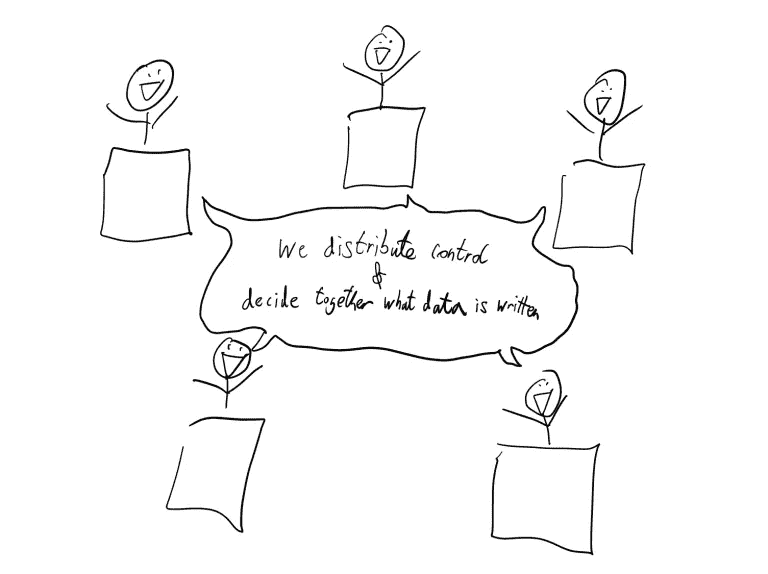 We distribute control
&
decide together what data is written